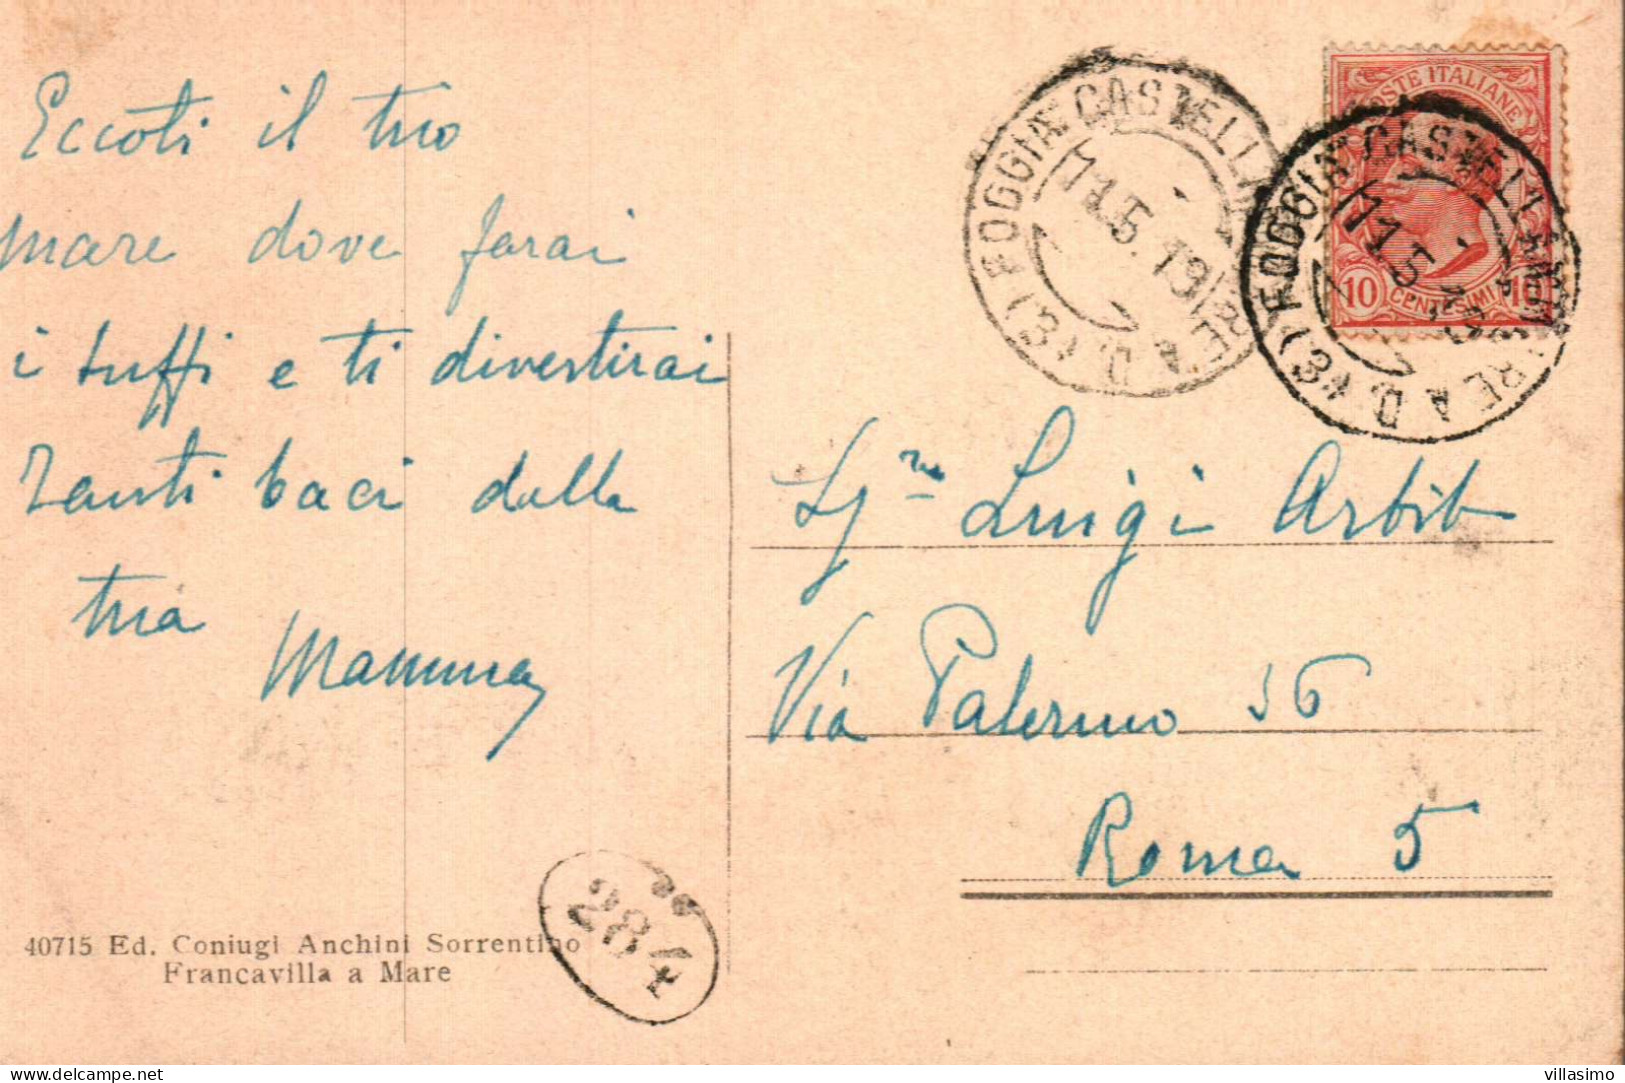 Eccoti il tuo
mare dove farai
i tuffi e ti divestirai
Tanti baci dalla
tua
Mamma
40715 Ed. Coniugi Anchini Sorrentino
Francavilla a Mare
284
FOGGIA CASTELLAMMARE AD. (3)
11.5.19
POSTE ITALIANE
10 CENTESIMI 10
FOGGIA CASTELLAMMARE AD. (3)
11.5.19
Luigi Arbib
Via Palermo 36
Roma 5
delcampe.net
villasimo